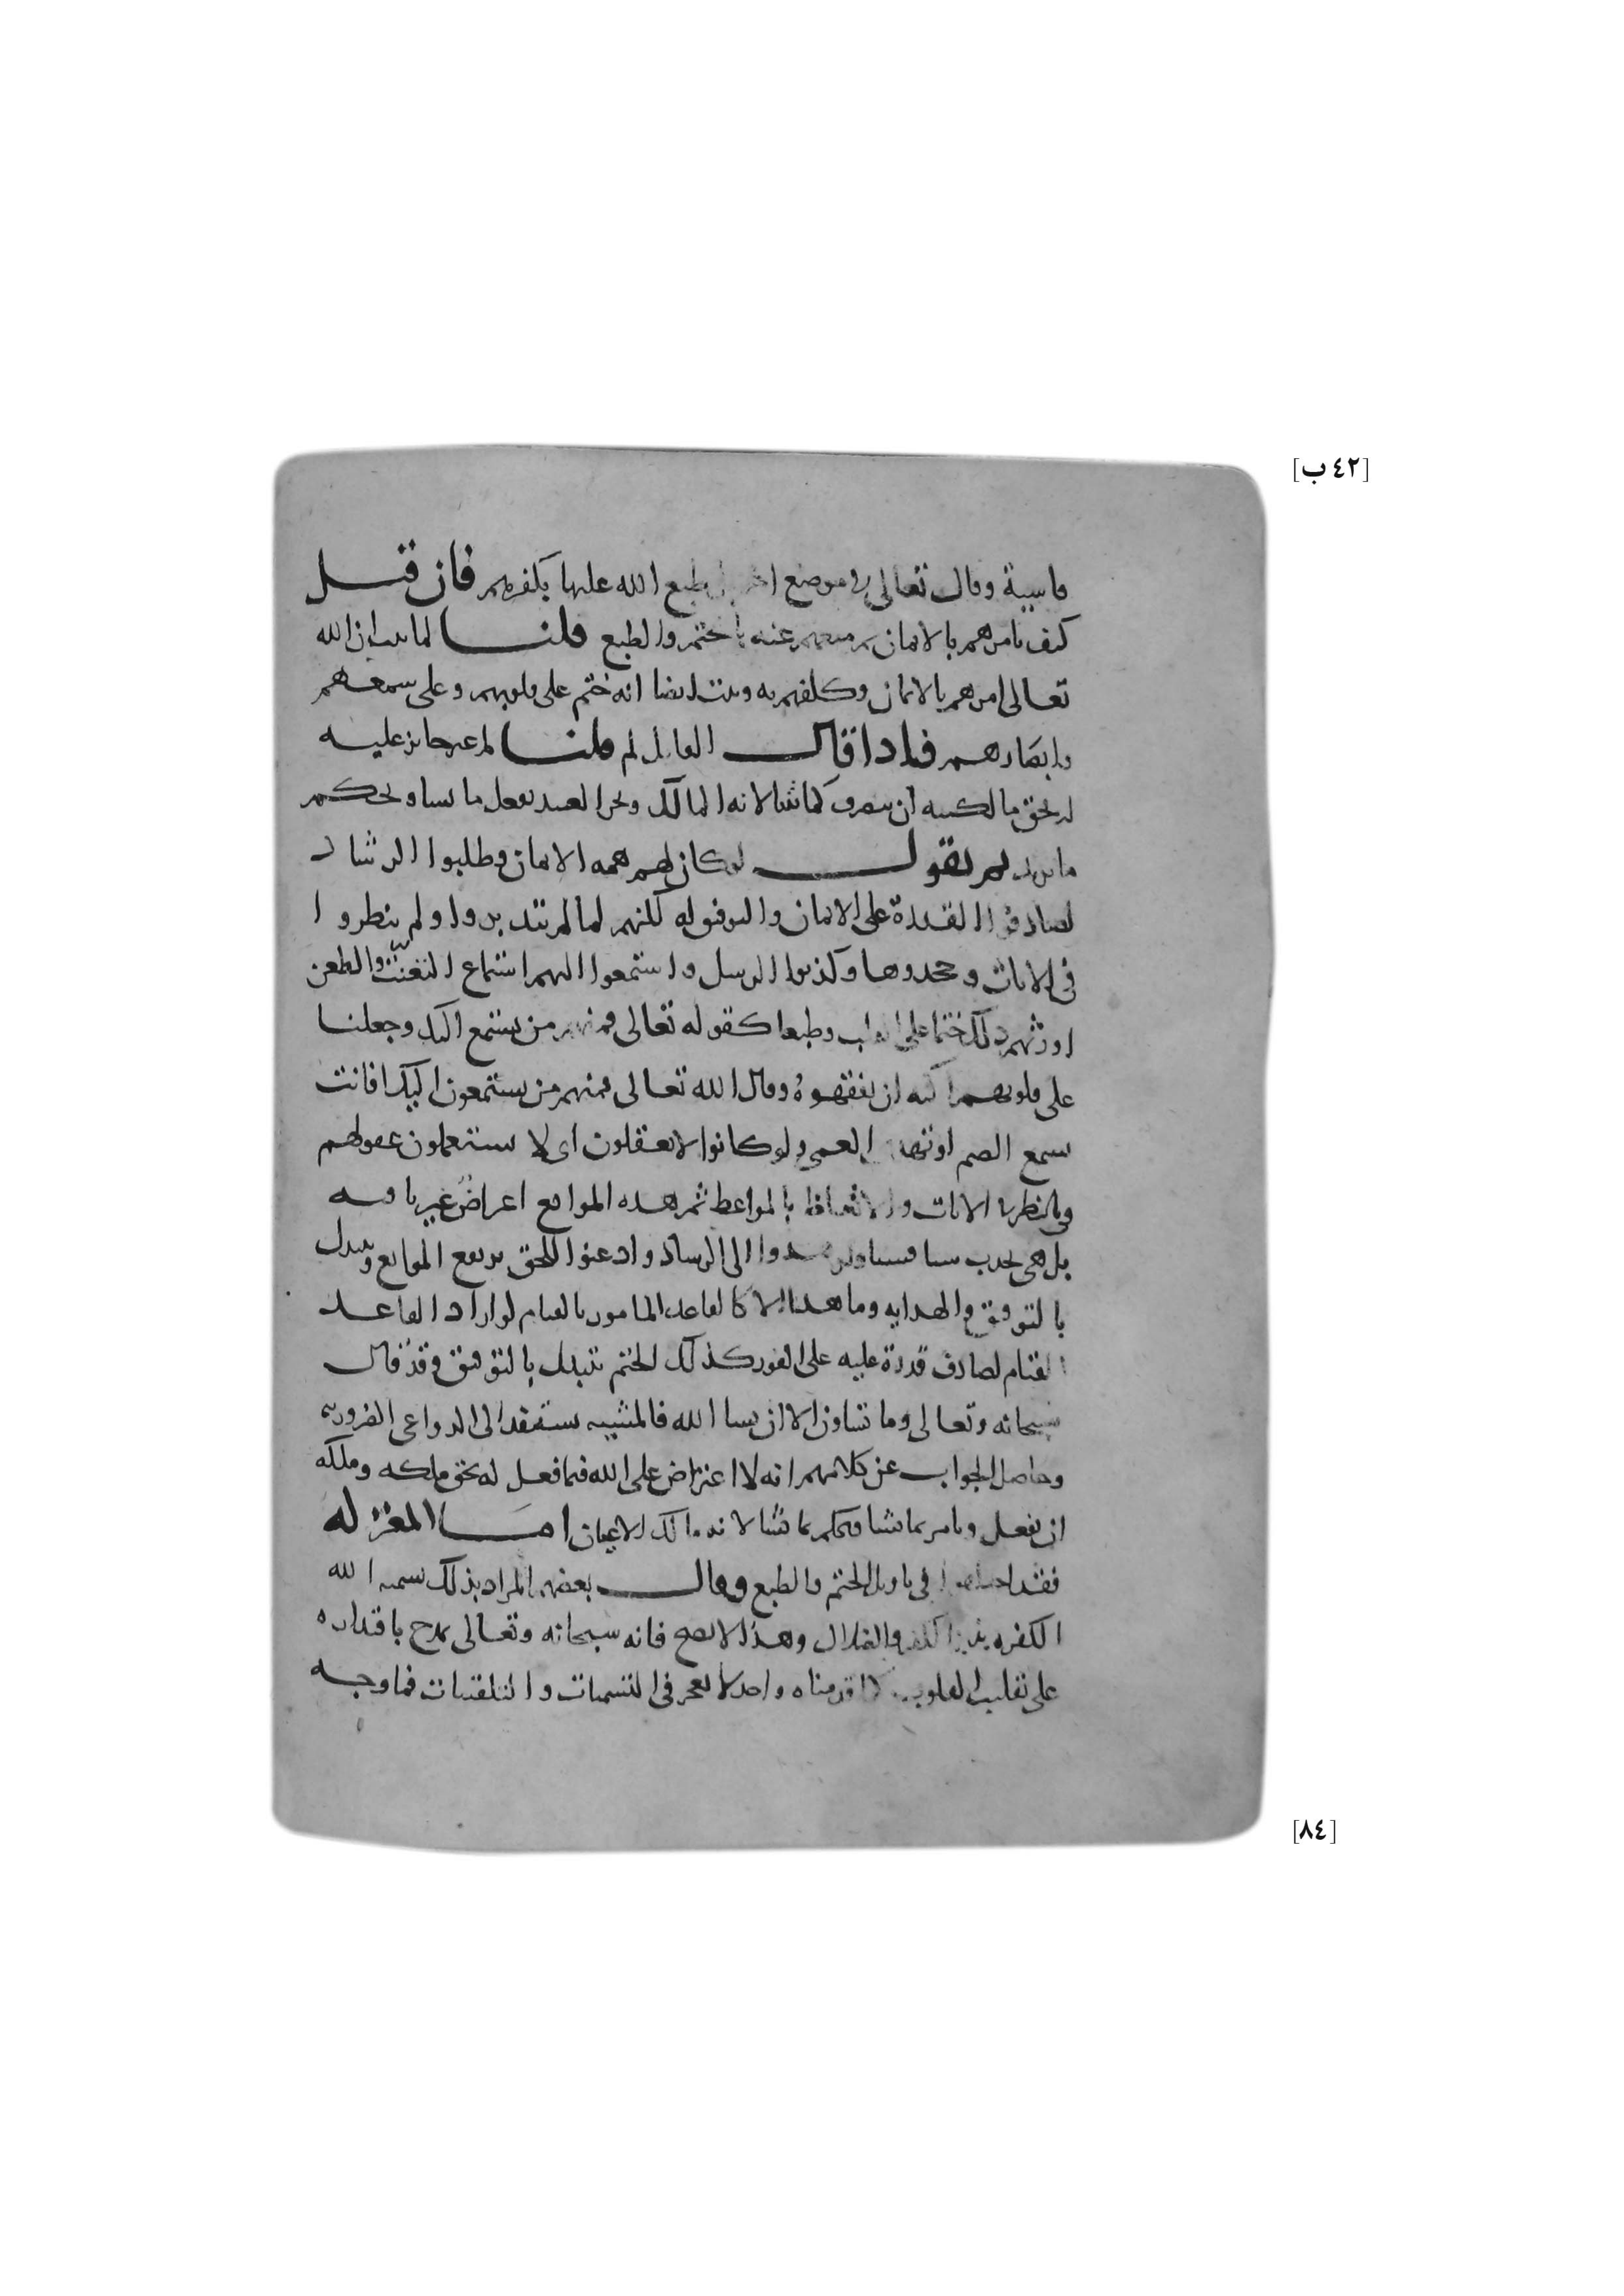 [٤٢ ب]
قاسية وقال تعالى في موضع اخر بل طبع الله عليها بكفرهم فان قيل
كيف يامرهم بالايمان ثم يمنعهم عنه بالختم والطبع قلنا لما ثبت ان الله
تعالى امرهم بالايمان وكلفهم به وثبت ايضا انه ختم على قلوبهم وعلى سمعهم
وابصارهم فاذا قال القائل لم قلنا لم غير جايز عليه
له بحق مالكيته ان يتصرف كما شا لانه المالك ونحن العبيد يفعل ما يشا ويحكم
ما يريد ثم نقول لو كان لهم همه الايمان وطلبوا الرشاد
لصادفوا القدرة على الايمان والتوفيق له لكنهم لما لم يتدبروا ولم ينظروا
في الايات وجحدوها وكذبوا الرسل واستمعوا اليهم استماع التعنت والطعن
اورثهم ذلك ختما على القلب وطبعا كقوله تعالى ومنهم من يستمع اليك وجعلنا
على قلوبهم اكنه ان يفقهوه وقال الله تعالى ومنهم من يستمعون اليك افانت
تسمع الصم او تهدي العمي ولو كانوا لا يعقلون اى لا يستعملون عقولهم
في النظر في الايات والاتعاظ بالمواعظ ثم هذه الموانع اعراض غير باقيه
بل هى تحدث شيا فشيا ولو قصدوا الى الرشاد واذعنوا للحق يرتفع الموانع وتبدل
بالتوفيق والهدايه وما هذا الا كالقاعد المامور بالقيام لو اراد القاعد
القيام لصادف قدرة عليه على الفور كذلك الختم يتبدل بالتوفيق وقد قال
سبحانه وتعالى وما تشاون الا ان يشا الله فالمشيه تستند الى الدواعى الضروريه
وحاصل الجواب عن كلامهم انه لا اعتراض على الله فيما فعل له بحق ملكه وملكه
ان يفعل ويامر بما شا ويحكم بما شا لانه مالك الاعيان اما المعتزله
فقد اختلفوا في تاويل الختم والطبع وقال بعضهم المراد بذلك تسميه الله
الكفره بنبز الكفر والضلال وهذا لا يصح فانه سبحانه وتعالى تمدح باقتداره
على تقليب القلوب كما قدمناه واحد لا يعجز في التسميات والتلقيبات فما وجه
[٨٤]